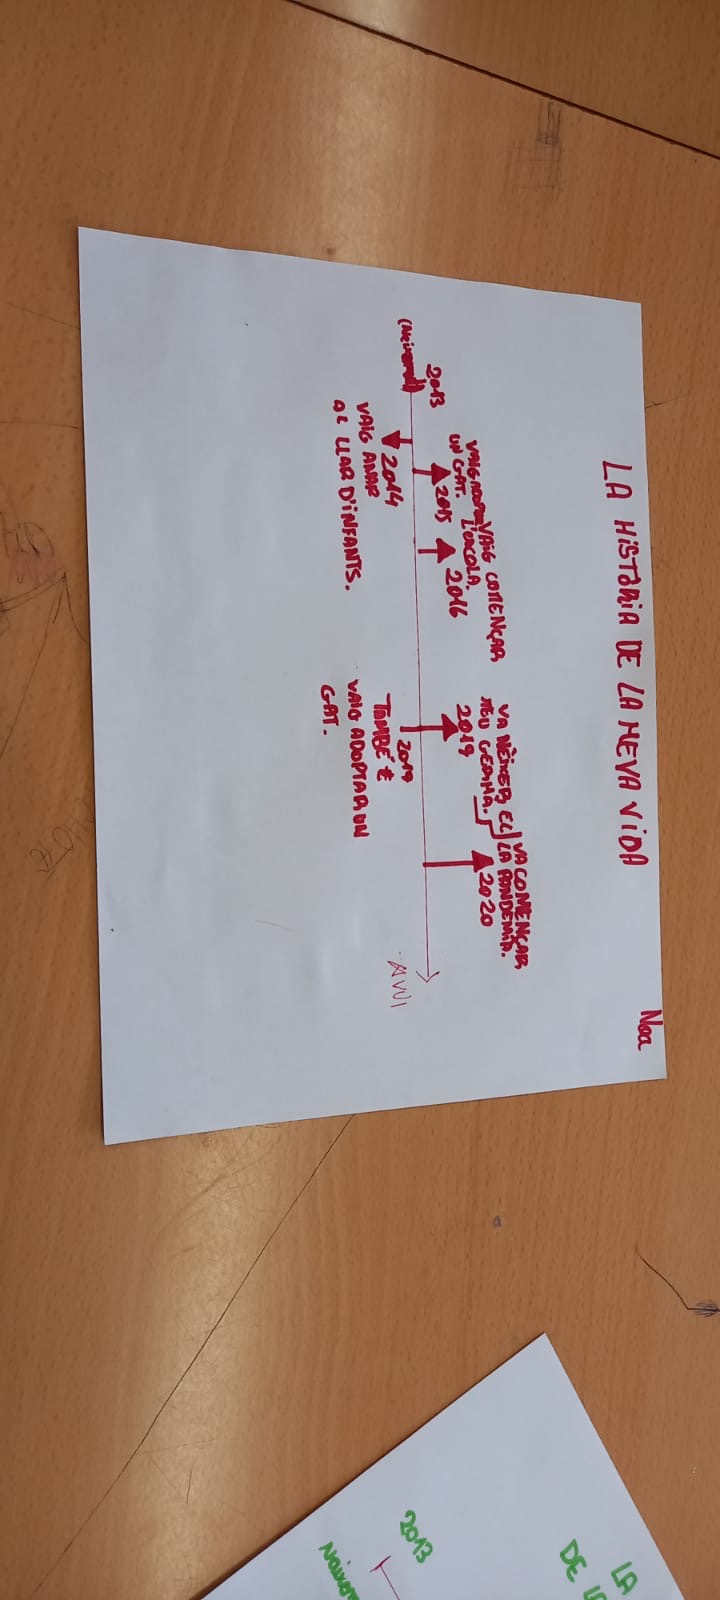 Noa
LA HISTÒRIA DE LA MEVA VIDA
VAIG ADOPTAR
UN GAT.
2015
VAIG COMENÇAR
L'ESCOLA.
2016
VA NÉIXER EL
MEU GERMÀ.
2019
VA COMENÇAR
LA PANDEMIA.
2020
2013
(Naixement)
2014
VAIG ANAR
AL LLAR D'INFANTS.
2019
TAMBÉ
VAIG ADOPTAR UN
GAT.
AVUI
LA
DE
2013